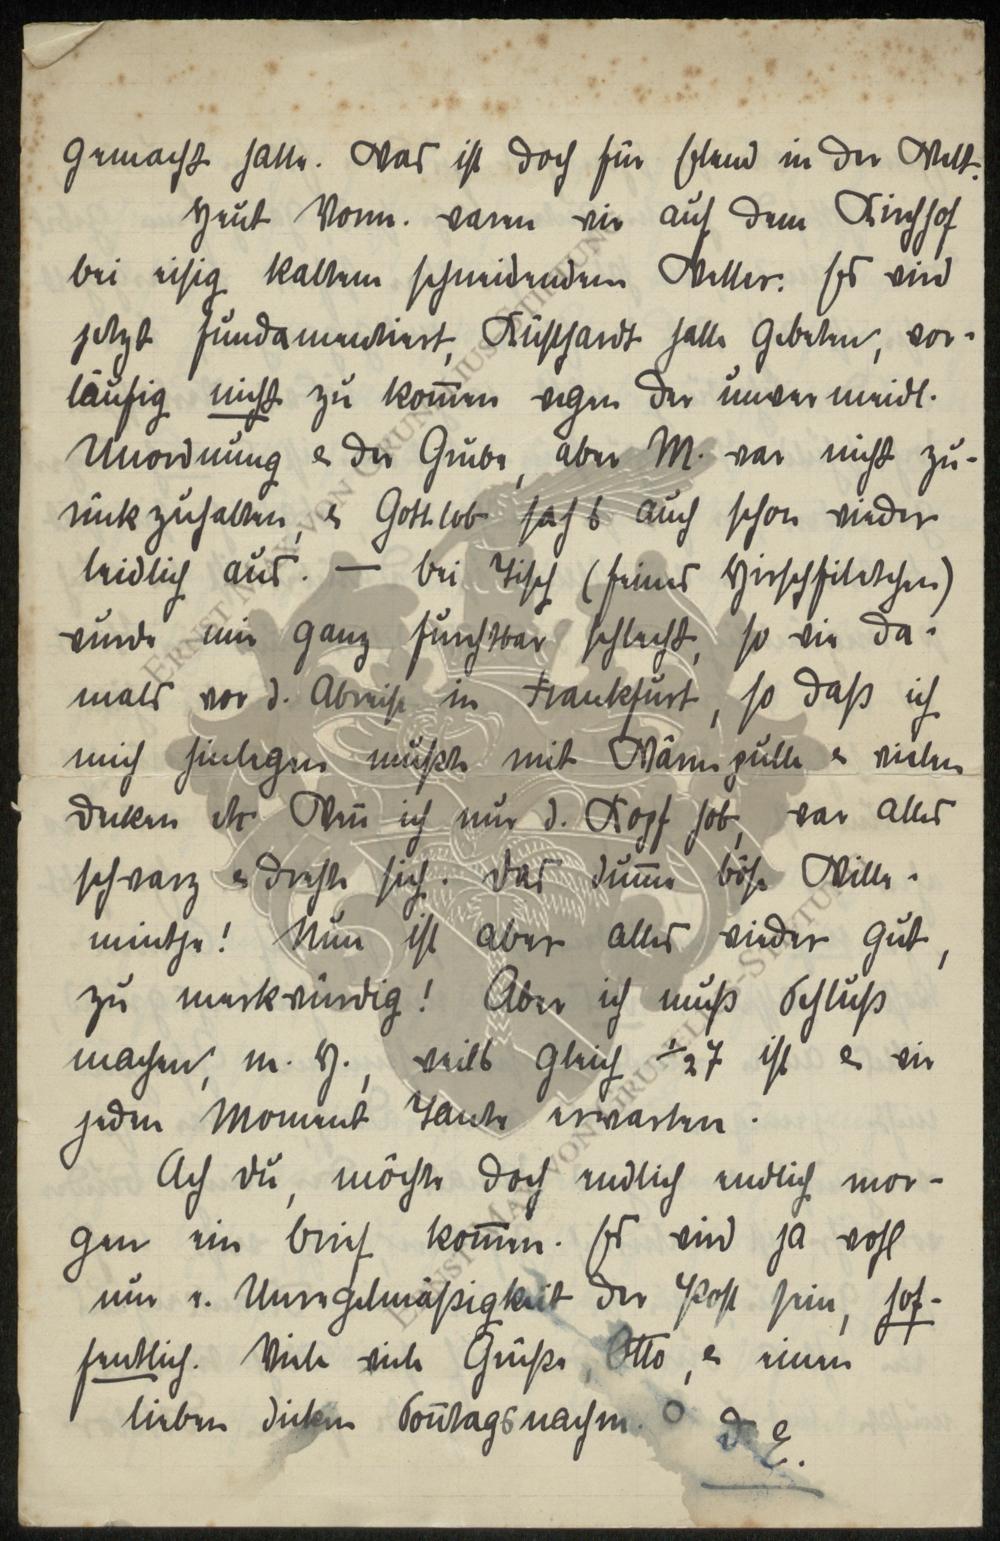 gemacht hatte. Was ist doch für Elend in der Welt.
Heut Vorm. waren wir auf dem Kirchhof
bei eisig kaltem schneidendem Wetter. Es wird
jetzt fundamentiert, Küsthardt hatte gebeten, vor-
läufig nicht zu kom̄en wegen der unvermeidl.
Unordnung u der Grube, aber M. war nicht zu-
rückzuhalten, u Gottlob sah's auch schon wieder
leidlich aus. — Bei Tisch (feines Hirschfiletchen)
wurde mir ganz furchtbar schlecht, so wie da-
mals vor d. Abreise in Frankfurt, so daß ich
mich hinlegen mußte mit Wärmpulle u vielen
Decken etc Wen̄ ich nur d. Kopf hob, war alles
schwarz u drehte sich. Das dum̄e böse Wille-
mintje! Nun ist aber alles wieder gut,
zu merkwürdig! Aber ich muß Schluß
machen, m. H., weils gleich ½7 ist u wir
jeden Moment Tante erwarten.
Ach du, möchte doch endlich endlich mor-
gen ein Brief kom̄en. Es wird ja wohl
nur e. Unregelmäßigkeit der Post sein, hof-
fentlich. Viele viele Grüße, Otto, u einen
lieben dicken Son̄tagsnachm. O D. E.
ERNST MAX VON GRUNELIUS-STIFTUNG
ERNST MAX VON GRUNELIUS-STIFTUNG